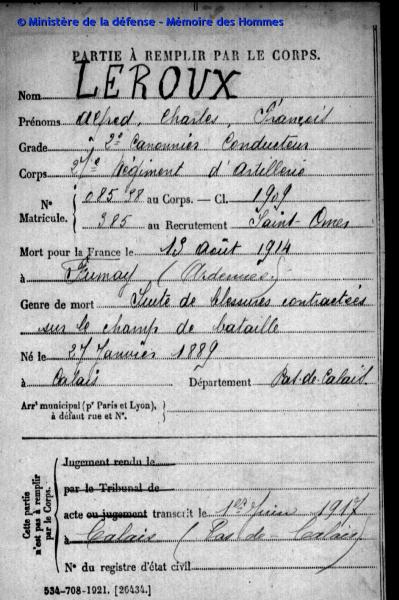 © Ministère de la défense - Mémoire des Hommes
PARTIE À REMPLIR PAR LE CORPS.
Nom LEROUX
Prénoms Alfred, Charles, François
Grade 2e Canonnier Conducteur
Corps 27e Régiment d'Artillerie
N° 08598 au Corps. — Cl. 1909
Matricule. 385 au Recrutement Saint-Omer
Mort pour la France le 13 Août 1914
à Fumay (Ardennes)
Genre de mort Suite de blessures contractées
sur le champ de bataille
Né le 27 Janvier 1889
à Calais Département Pas-de-Calais
Arrt municipal (pr Paris et Lyon),
à défaut rue et N°.
Cette partie
n'est pas à remplir
par le Corps.
Jugement rendu le
par le Tribunal de
acte ou jugement transcrit le 1er Juin 1917
à Calais (Pas-de-Calais)
N° du registre d'état civil
534-708-1921. [26434.]